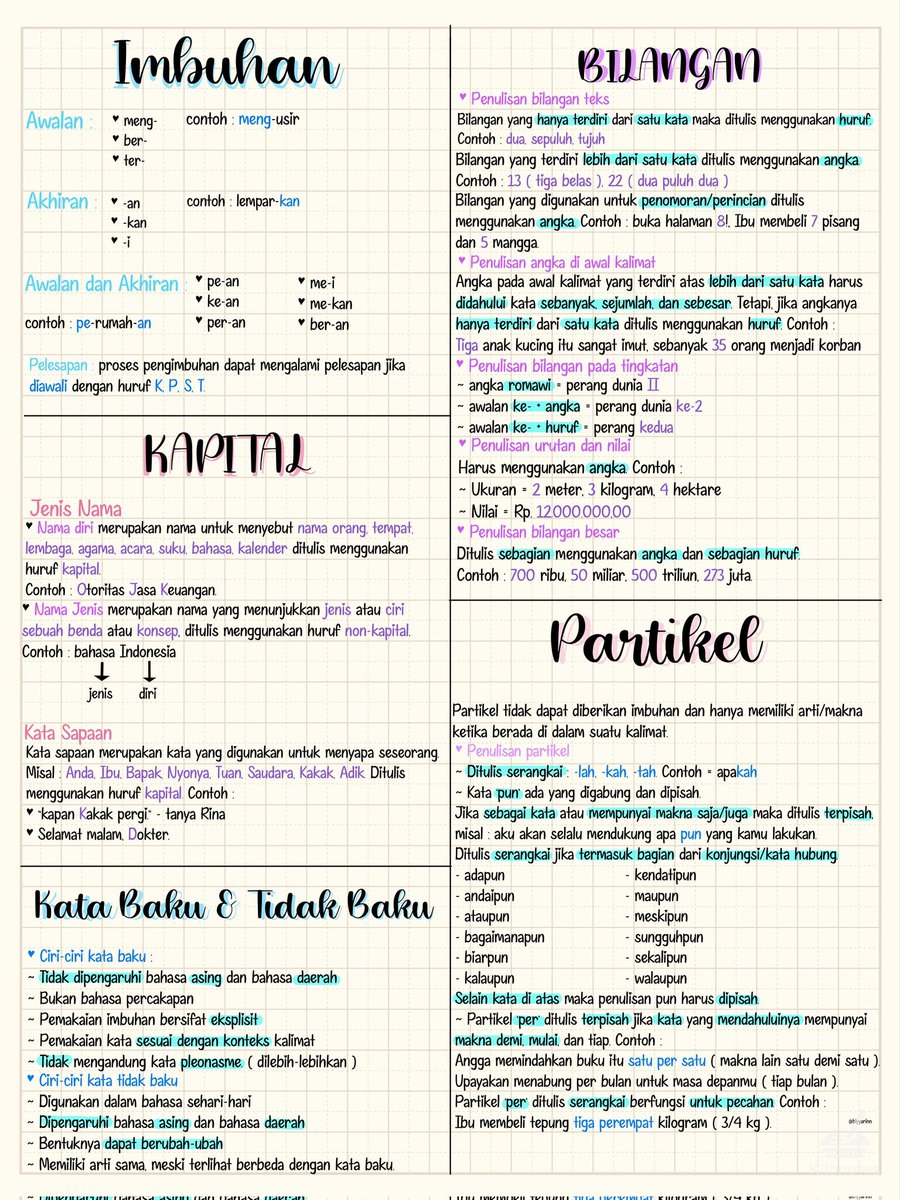 Imbuhan
Awalan : ♥ meng- contoh : meng-usir
♥ ber-
♥ ter-
Akhiran : ♥ -an contoh : lempar-kan
♥ -kan
♥ -i
Awalan dan Akhiran : ♥ pe-an ♥ me-i
♥ ke-an ♥ me-kan
contoh : pe-rumah-an ♥ per-an ♥ ber-an
Pelesapan : proses pengimbuhan dapat mengalami pelesapan jika
diawali dengan huruf K, P, S, T.
KAPITAL
Jenis Nama
♥ Nama diri merupakan nama untuk menyebut nama orang, tempat,
lembaga, agama, acara, suku, bahasa, kalender ditulis menggunakan
huruf kapital.
Contoh : Otoritas Jasa Keuangan.
♥ Nama Jenis merupakan nama yang menunjukkan jenis atau ciri
sebuah benda atau konsep, ditulis menggunakan huruf non-kapital.
Contoh : bahasa Indonesia
↓ ↓
jenis diri
Kata Sapaan
Kata sapaan merupakan kata yang digunakan untuk menyapa seseorang.
Misal : Anda, Ibu, Bapak, Nyonya, Tuan, Saudara, Kakak, Adik. Ditulis
menggunakan huruf kapital. Contoh :
♥ "kapan Kakak pergi." - tanya Rina
♥ Selamat malam, Dokter.
Kata Baku & Tidak Baku
♥ Ciri-ciri kata baku :
~ Tidak dipengaruhi bahasa asing dan bahasa daerah
~ Bukan bahasa percakapan
~ Pemakaian imbuhan bersifat eksplisit
~ Pemakaian kata sesuai dengan konteks kalimat
~ Tidak mengandung kata pleonasme ( dilebih-lebihkan )
♥ Ciri-ciri kata tidak baku
~ Digunakan dalam bahasa sehari-hari
~ Dipengaruhi bahasa asing dan bahasa daerah
~ Bentuknya dapat berubah-ubah
~ Memiliki arti sama, meski terlihat berbeda dengan kata baku.
BILANGAN
♥ Penulisan bilangan teks
Bilangan yang hanya terdiri dari satu kata maka ditulis menggunakan huruf.
Contoh : dua, sepuluh, tujuh
Bilangan yang terdiri lebih dari satu kata ditulis menggunakan angka.
Contoh : 13 ( tiga belas ), 22 ( dua puluh dua )
Bilangan yang digunakan untuk penomoran/perincian ditulis
menggunakan angka. Contoh : buka halaman 8!, Ibu membeli 7 pisang
dan 5 mangga.
♥ Penulisan angka di awal kalimat
Angka pada awal kalimat yang terdiri atas lebih dari satu kata harus
didahului kata sebanyak, sejumlah, dan sebesar. Tetapi, jika angkanya
hanya terdiri dari satu kata ditulis menggunakan huruf. Contoh :
Tiga anak kucing itu sangat imut, sebanyak 35 orang menjadi korban
♥ Penulisan bilangan pada tingkatan
~ angka romawi = perang dunia II
~ awalan ke- + angka = perang dunia ke-2
~ awalan ke- + huruf = perang kedua
♥ Penulisan urutan dan nilai
Harus menggunakan angka. Contoh :
~ Ukuran = 2 meter, 3 kilogram, 4 hektare
~ Nilai = Rp. 12.000.000,00
♥ Penulisan bilangan besar
Ditulis sebagian menggunakan angka dan sebagian huruf.
Contoh : 700 ribu, 50 miliar, 500 triliun, 273 juta.
Partikel
Partikel tidak dapat diberikan imbuhan dan hanya memiliki arti/makna
ketika berada di dalam suatu kalimat.
♥ Penulisan partikel
~ Ditulis serangkai : -lah, -kah, -tah. Contoh = apakah
~ Kata 'pun' ada yang digabung dan dipisah.
Jika sebagai kata atau mempunyai makna saja/juga maka ditulis terpisah,
misal : aku akan selalu mendukung apa pun yang kamu lakukan.
Ditulis serangkai jika termasuk bagian dari konjungsi/kata hubung.
- adapun - kendatipun
- andaipun - maupun
- ataupun - meskipun
- bagaimanapun - sungguhpun
- biarpun - sekalipun
- kalaupun - walaupun
Selain kata di atas maka penulisan pun harus dipisah.
~ Partikel 'per' ditulis terpisah jika kata yang mendahuluinya mempunyai
makna demi, mulai, dan tiap. Contoh :
Angga memindahkan buku itu satu per satu ( makna lain satu demi satu ).
Upayakan menabung per bulan untuk masa depanmu ( tiap bulan ).
Partikel 'per' ditulis serangkai berfungsi untuk pecahan. Contoh :
Ibu membeli tepung tiga perempat kilogram ( 3/4 kg ).